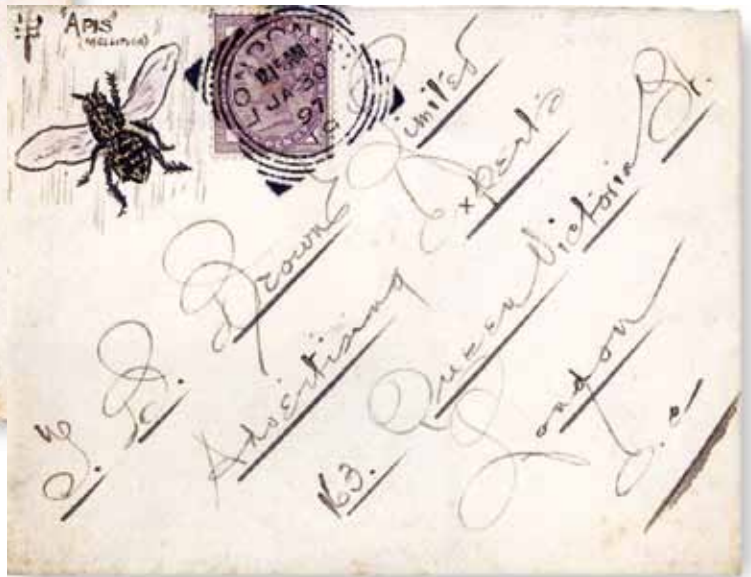 'APIS'
(MELLIFICA)
LONDON
12.15 AM
JA 30
97
T. B. Browne Limited
Advertising Experts
163. Queen Victoria St.
London
E.C